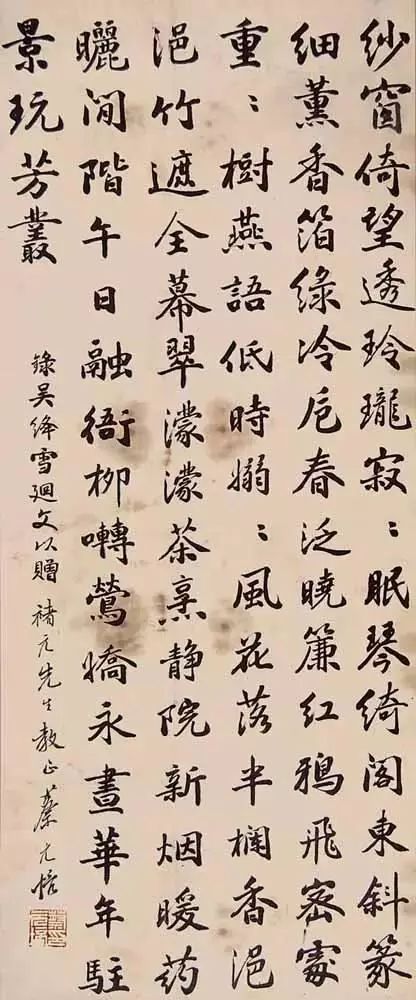 纱窗倚望透玲瓏寂〻眠琴绮阁東斜篆
细薰香箔绿冷卮春泛曉簾红鴉飛密處
重〻樹燕語低時嫋〻風花落半欄香浥
浥竹遮全幕翠濛濛茶烹静院新烟暖药
曬閒階午日融衙柳囀鶯嬌永晝華年駐
景玩芳叢
錄吴絳雪迴文以贈 元先生教正 蔡元培